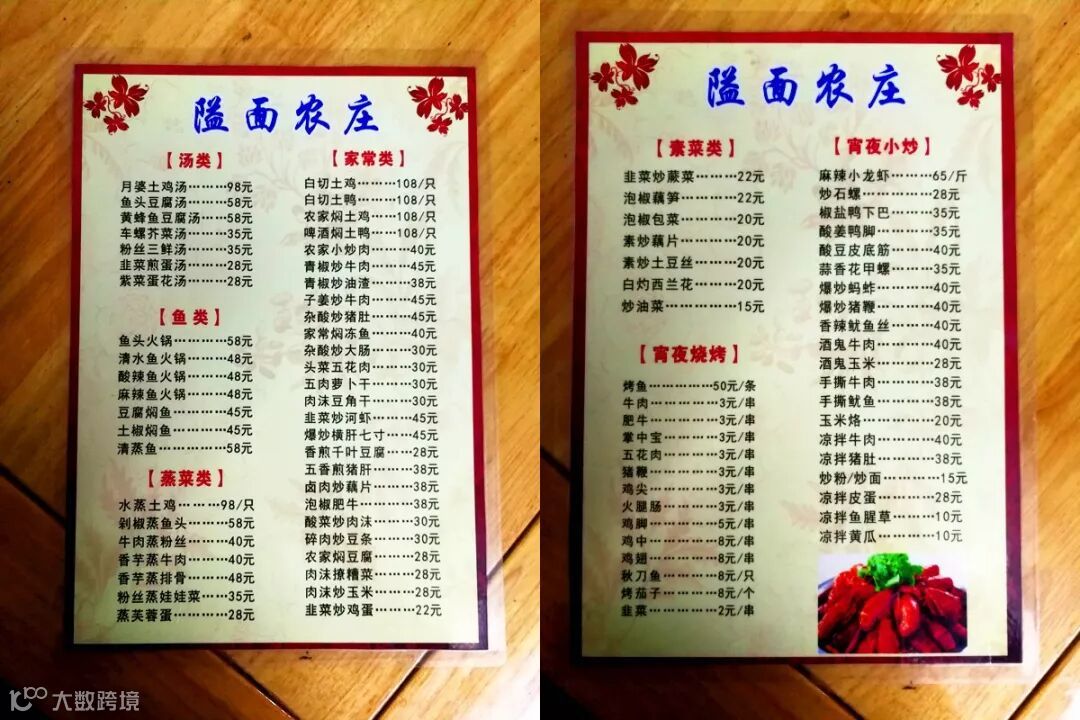 隘面农庄
【汤类】
月婆土鸡汤………98元
鱼头豆腐汤………58元
黄蜂鱼豆腐汤……58元
车螺芥菜汤………35元
粉丝三鲜汤………35元
韭菜煎蛋汤………28元
紫菜蛋花汤………28元
【鱼类】
鱼头火锅…………58元
清水鱼火锅………48元
酸辣鱼火锅………48元
麻辣鱼火锅………48元
豆腐焖鱼…………45元
土椒焖鱼…………45元
清蒸鱼……………58元
【蒸菜类】
水蒸土鸡………98/只
剁椒蒸鱼头………58元
牛肉蒸粉丝………40元
香芋蒸牛肉………40元
香芋蒸排骨………48元
粉丝蒸娃娃菜……35元
蒸芙蓉蛋…………28元
【家常类】
白切土鸡………108/只
白切土鸭………108/只
农家焖土鸡……108/只
啤酒焖土鸭……108/只
农家小炒肉………40元
青椒炒牛肉………45元
青椒炒油渣………38元
子姜炒牛肉………45元
杂酸炒猪肚………45元
家常焖冻鱼………40元
杂酸炒大肠………30元
头菜五花肉………30元
五肉萝卜干………30元
肉沫豆角干………30元
韭菜炒河虾………45元
爆炒横肝七寸……45元
香煎千叶豆腐……28元
五香煎猪肝………38元
卤肉炒藕片………38元
泡椒肥牛…………38元
酸菜炒肉沫………30元
碎肉炒豆条………30元
农家焖豆腐………28元
肉沫撩糟菜………28元
肉沫炒玉米………28元
韭菜炒鸡蛋………22元
隘面农庄
【素菜类】
韭菜炒蕨菜………22元
泡椒藕笋…………22元
泡椒包菜…………20元
素炒藕片…………20元
素炒土豆丝………20元
白灼西兰花………20元
炒油菜……………15元
【宵夜烧烤】
烤鱼……………50元/条
牛肉……………3元/串
肥牛……………3元/串
掌中宝…………3元/串
五花肉…………3元/串
猪鞭……………3元/串
鸡尖……………3元/串
火腿肠…………3元/串
鸡脚……………5元/串
鸡中……………8元/串
鸡翅……………8元/串
秋刀鱼…………8元/只
烤茄子…………8元/个
韭菜……………2元/串
【宵夜小炒】
麻辣小龙虾………65/斤
炒石螺……………28元
椒盐鸭下巴………35元
酸姜鸭脚…………35元
酸豆皮底筋………40元
蒜香花甲螺………35元
爆炒蚂蚱…………40元
爆炒猪鞭…………40元
香辣鱿鱼丝………40元
酒鬼牛肉…………40元
酒鬼玉米…………28元
手撕牛肉…………38元
手撕鱿鱼…………38元
玉米烙……………20元
凉拌牛肉…………40元
凉拌猪肚…………38元
炒粉/炒面…………15元
凉拌皮蛋…………28元
凉拌鱼腥草………10元
凉拌黄瓜…………10元
大数跨境